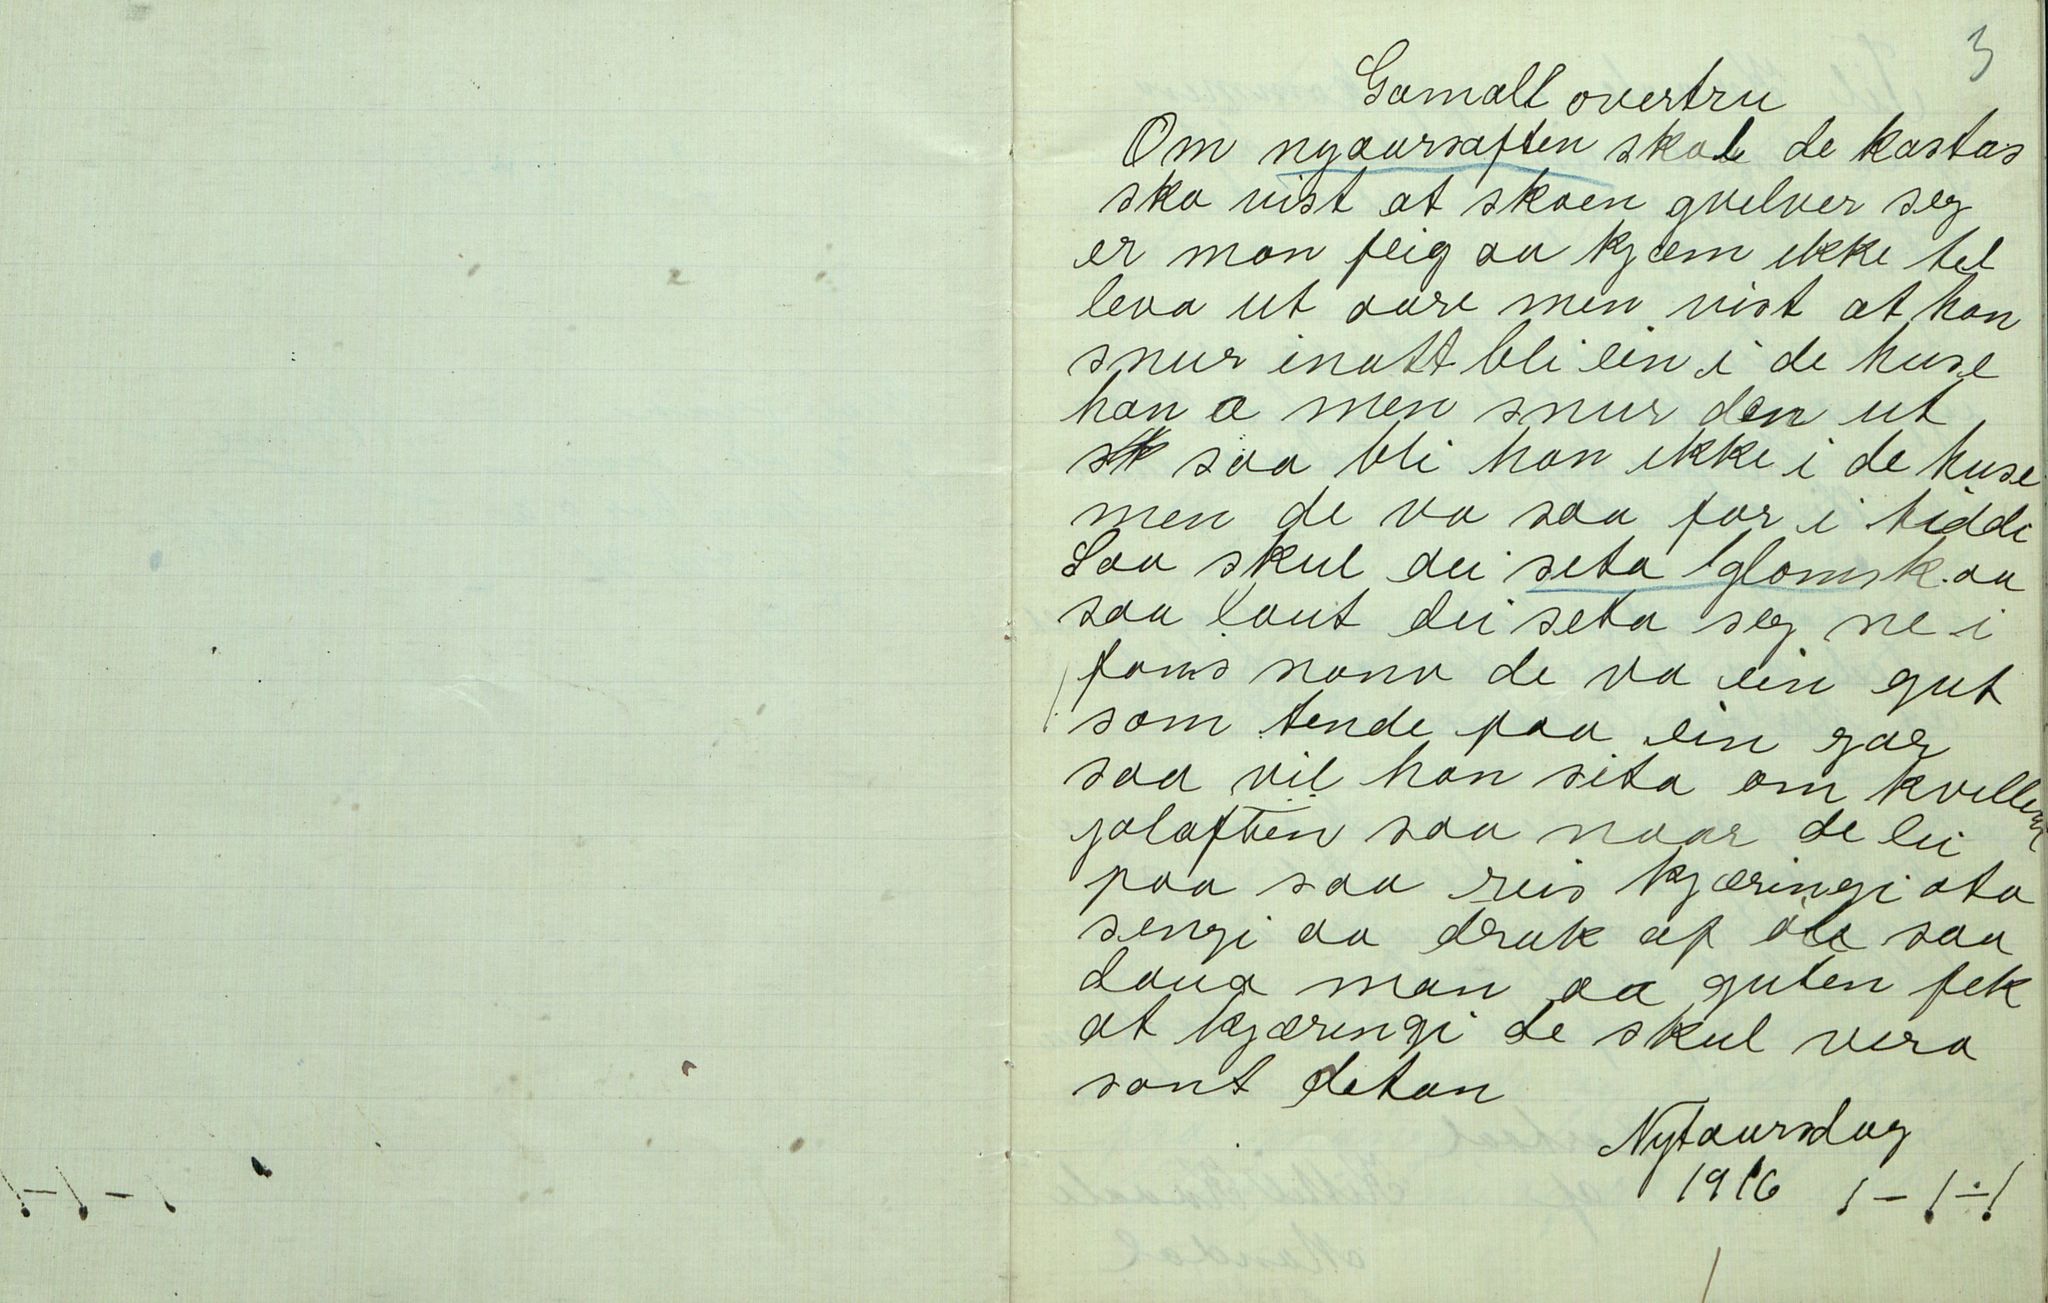 3
Gamalt overtru
Om nyaarsaften skal de kastas
sko vist at skoen qvelver seg
er man feig aa kjæm ikke tel
leva ut aare men vist at han
snur inatt bli ein i de huse
han a men snur den ut
saa bli han ikke i de huse
men de va saa far i tiddi
Saa skul dei seta glomsk aa
saa laut dei seta seg ne i
fams nann de va ein gut
som tende paa ein gar
saa vil han sita om kvellen
jolaften saa naar de lei
paa saa reis kjæringi ota
sengi aa drak af øle saa
doua man aa guten fek
at kjæringi de skul vera
sant detan
Nytaarsdag
1916 1-1÷1